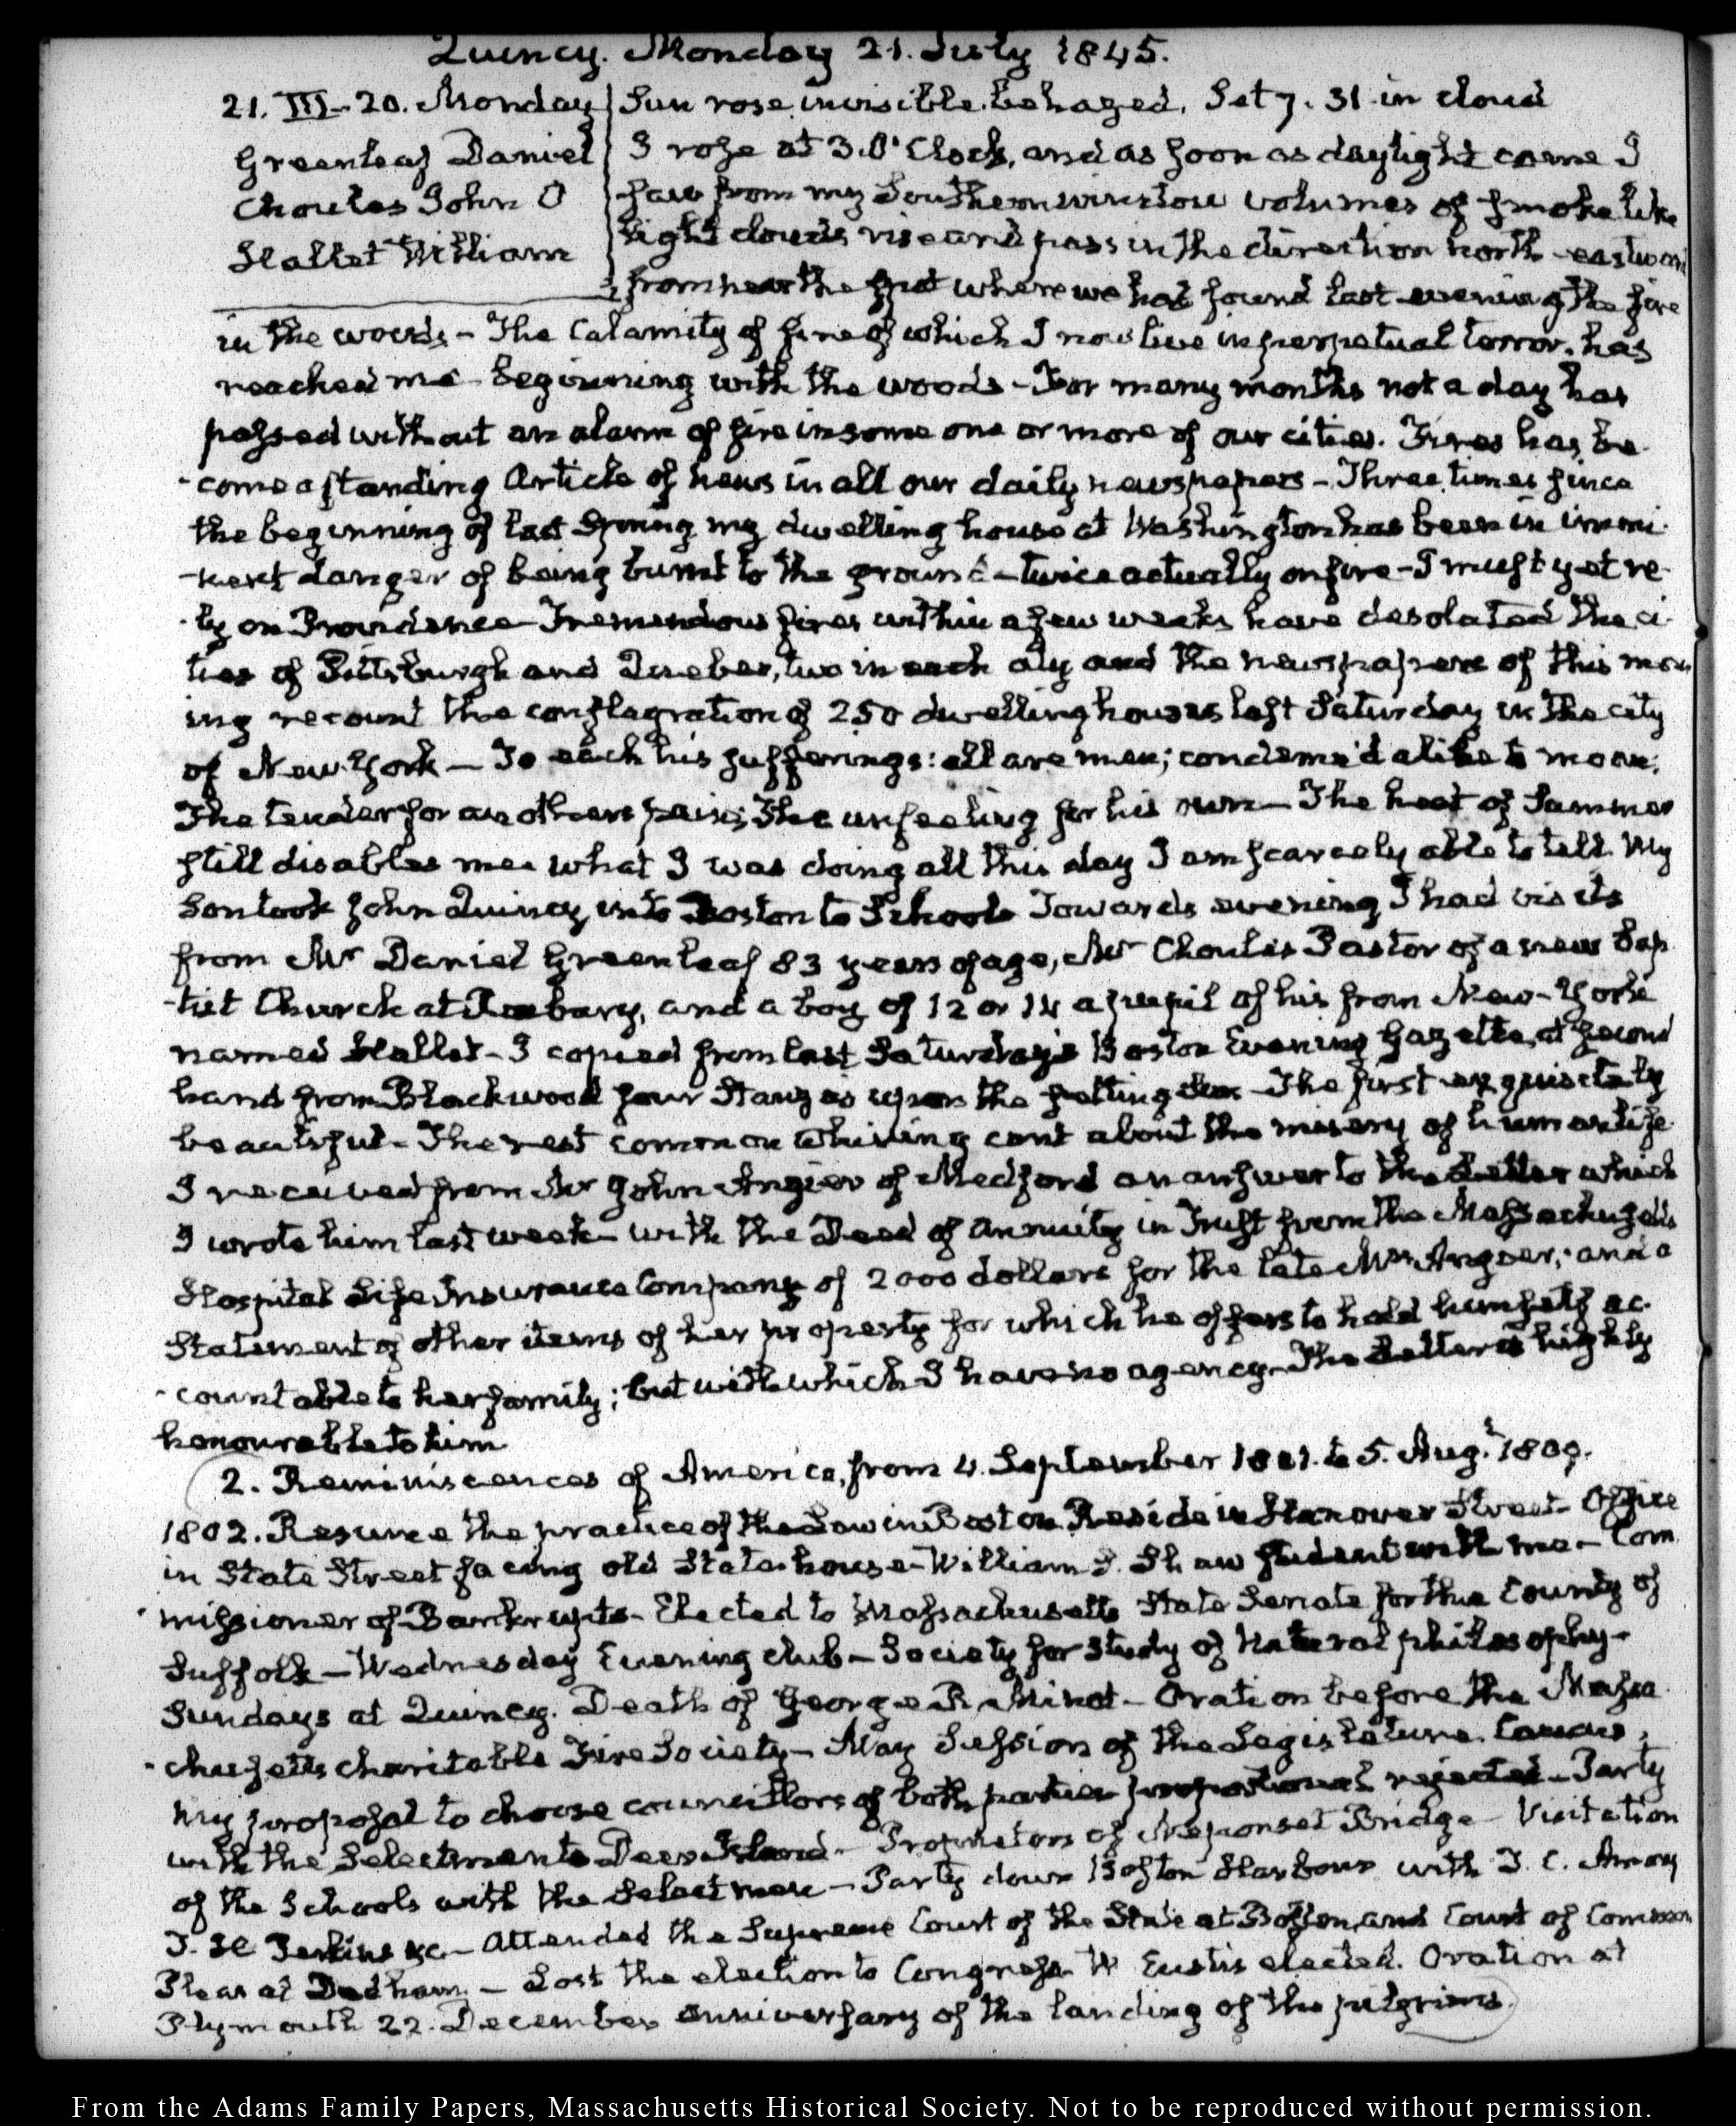 Quincy. Monday 21. July 1845.
21. III-20. Monday
Greenleaf Daniel
Choules John O
Hallet William
Sun rose invisible behazed. Set 7. 31 in cloud
I rose at 3. O'Clock, and as soon as daylight came I
saw from my Southern window volumes of smoke like
light clouds rise and pass in the direction north-eastward
from near the spot where we had found last evening the fire
in the woods - The Calamity of fire of which I now live in perpetual terror, has
reached me - beginning with the woods - For many months not a day has
passed without an alarm of fire in some one or more of our cities. Fires has be-
-come a standing Article of news in all our daily newspapers - Three times since
the beginning of last Spring my dwelling house at Washington has been in immi-
-nent danger of being burnt to the ground - twice actually on fire - I must yet re-
-ly on Providence - Tremendous fires within a few weeks have desolated the ci-
ties of Pittsburgh and Quebec, two in each city and the newspapers of this morn
ing recount the conflagration of 250 dwelling houses last Saturday in the city
of New-York - To each his sufferings: all are men; condemn'd alike to moan;
The tender for another's pain; The unfeeling for his own - The heat of Summer
still disables me what I was doing all this day I am scarcely able to tell. My
Son took John Quincy into Boston to School Towards evening I had visits
from Mr Daniel Greenleaf 83 years of age, Mr Choules Pastor of a new Bap
-tist Church at Roxbury, and a boy of 12 or 14 a pupil of his from New-York
named Hallet - I copied from last Saturday's Boston Evening Gazette, at second
hand from Blackwood four Stanzas upon the falling - The first exquisitely
beautiful - The rest common whining cant about the misery of human life
I received from Mr John Angier of Medford an answer to the Letter which
I wrote him last week - with the Deed of Annuity in Trust from the Massachusetts
Hospital Life Insurance Company of 2000 dollars for the late Mrs Angier; and a
Statement of other items of her property for which he offers to hold himself ac-
-countable to her family; but with which I have no agency - The Letter is highly
honourable to him
2. Reminiscences of America, from 4. September 1801. to 5. Augt. 1809.
1802. Resume the practice of the Law in Boston Reside in Hanover Street - Office
in State Street facing old State-house - William S. Shaw student with me - Com
missioner of Bankrupts - Elected to Massachusetts State Senate for the County of
Suffolk - Wednesday Evening club - Society for Study of Natural philosophy -
Sundays at Quincy. Death of George R. Minot - Oration before the Massa
-chusetts charitable Fire Society - May Session of the Legislature. Caucus;
my proposal to choose councillors of both parties proportional rejected - Party
with the Selectmen to Deer Island - Proprietors of Neponset Bridge - Visitation
of the Schools with the Selectmen - Party down Boston Harbour with T. C. Amory
T. H Perkins &c - Attended the Supreme Court of the State at Boston, and Court of Common
Pleas at Dedham. - Lost the election to Congress W Eustis elected. Oration at
Plymouth 22. December anniversary of the landing of the pilgrims.
From the Adams Family Papers, Massachusetts Historical Society. Not to be reproduced without permission.